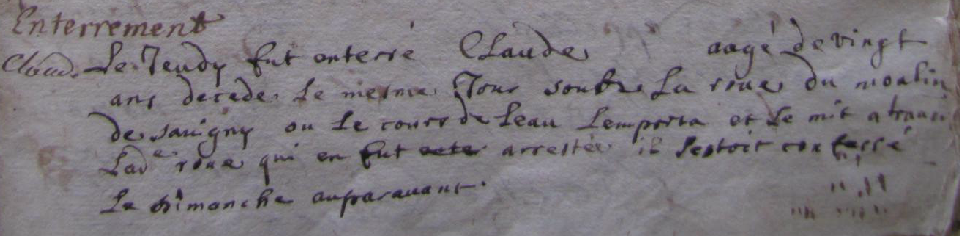 Enterrement
Claude Le Jeudy fut enterré Claude aagé de vingt
ans decede le mesme Jour soubz la roue du moulin
de savigny ou le cours de leau lemporta et le mit a travers
Lad.e roue qui en fut arrestée il sestoit confessé
Le dimanche auparavant.